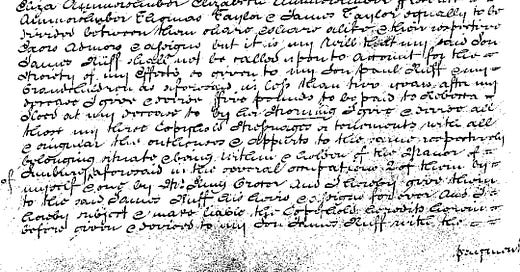 Eliza Ammershuber Elizabeth Ammershuber
Ammershuber Thomas Taylor & James Taylor equally to be
divided between them share & share alike & their respective
Exors Admors & assigns but it is my Will that my said Son
James Nuff shall not be called upon to account for the
Moiety of my Effects so given to my Son Paul Nuff & my
Grandchildren as aforesaid in less than two years after my
decease I give & devise ffive pounds to be paid to Rebecca
at my decease to by her Mourning I give & devise all
those my three Copyhold Messuages or tenements with all
& singular the outhouses & Appurts to the same respectively
belonging situate & being within & holden of the Manor of
aforesaid in the several occupations 2 of them by
myself & one by and I hereby give them
to the said James Nuff his heirs & assigns for ever And I
hereby subject & make liable the Copyhold heredits herein
before given & devised to my Son James Nuff with the
of